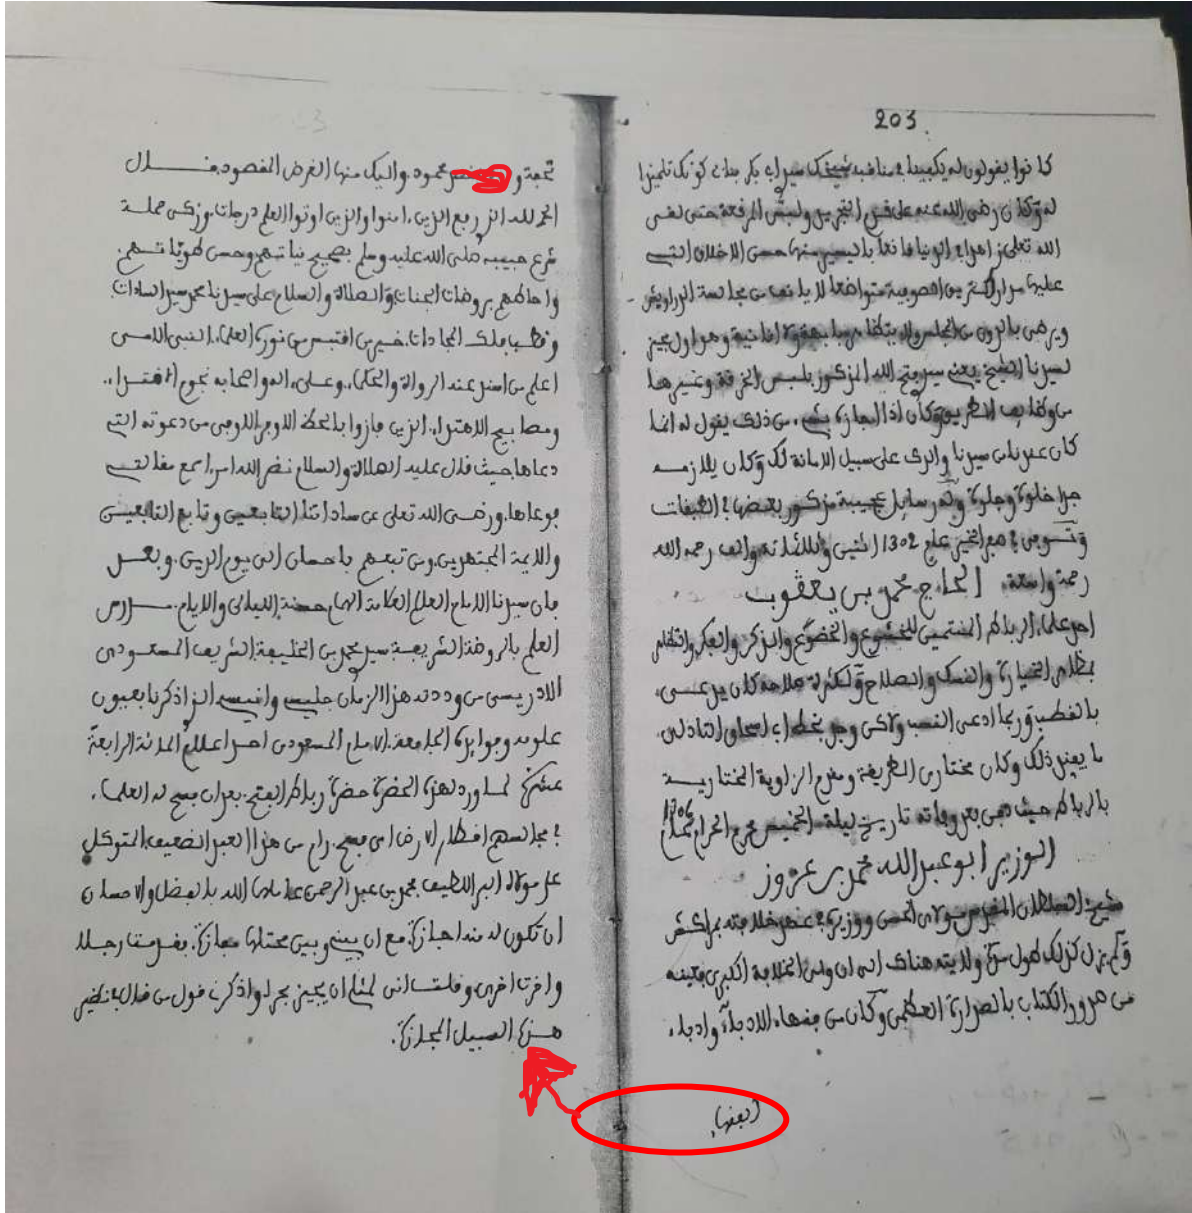 203
كانوا يقولون له يكفيك في مناقب شيخك سيدي أبي بكر بناني كونك تلميذا
له وكان رضي الله عنه على قدم التجريد ولبس المرقعة حتى لقي
الله تعلى زاهدا في الدنيا قانعا باليسير منها حسن الاخلاق التي
عليها مدار الصوفية متواضعا لا يانف من مجالسة الدراويش
ويرضى بالدون من المجلس ولا يتكلم وهو اول مجيز
لسيدنا الشيخ يعني سيدي فتح الله المذكور بلبس الخرقة وغيرها
من وظايف الطريق وكان اذا اجازه بشيء من ذلك يقول له انما
كان عندنا من سيدنا والدك على سبيل الامانة لك وكان يلازمه
جدا خلوة وجلوة وله رسايل عجيبة مذكور بعضها في الطبقات
وتوفي في مع الخير عام 1302 اثنين وثلاثمائة والف رحمه الله
رحمة واسعة. الحاج محمد بن يعقوب
احد علماء الرباط المنتمين للخشوع والخضوع والذكر والفكر وانتظام
بظاهر الخيارة والنسك والصلاح ولكثرة صلاحه كان يدعى
بالقطب وربما ادعى النسب ولاكن وجد بخط ابي اسحاق التادلي
ما يفيد ذلك وكان مختاري الطريقة ومقدم الزاوية المختارية
بالرباط حيث دفن بعد وفاته تاريخ ليلة الخميس محرم الحرام عام 1306
الوزير ابو عبد الله محمد بن عزوز
شيخ السلطان المقدس مولاي الحسن ووزيره في عنصر خلافته بمراكش
ولم يزل كذلك طول مدة ولايته هناك الى ان ولي الخلافة الكبرى فعينه
من صدور الكتاب بالصدارة العظمى وكان من فقهاء الادباء وادباء
الفقهاء
تحفة و محمود. واليك منها الغرض المقصود. قال
الحمد لله الذي رفع الذين امنوا والذين اوتوا العلم درجات. وزكى حملة
شرع حبيبه صلى الله عليه وسلم بصحيح نياتهم وحسن طوياتهم.
واحاطهم بروضات الجنات. والصلاة والسلام على سيدنا محمد سيد السادات
وقطب فلك المجادات. خير من اقتبس من نوره العلماء. النبي الامي
اعلم من اسند عنه الرواة والحكماء. وعلى ءاله واصحابه نجوم الاقتداء.
ومصابيح الاهتداء. الذين فازوا بالحظ الاوفر الاوفى من دعوته التي
دعاها حيث قال عليه الصلاة والسلام نضر الله امرأ سمع مقالتي
فوعاها. ورضي الله تعلى عن ساداتنا التابعين وتابع التابعين
والايمة المجتهدين. ومن تبعهم باحسان الى يوم الدين. وبعد
فان سيدنا الامام العالم العلامة الهمام حسنة الليالي والايام. مدرس
العلم بالروضة الشريفة سيدي محمد بن الخليفة الشريف المسعودي
الادريسي من وددته هذا الزمان جليسي وانيسي الذي اذكرنا بعيون
علومه وفوايده الجامعة. الامام المسعودي احد اعلام المائة الرابعة
عشرة لما ورد لهذه الحضرة حضرة رباط الفتح. بعد ان فسح له العلماء
في مجالسهم اقطار الارض اي فسح. رام من هذا العبد الضعيف المتوكل
على مولاه البر اللطيف محمد بن عبد الرحمن عامله الله بالفضل والاحسان
ان تكون له منه اجازة. مع ان بيني وبين محتدها مفازة. فقدمت رجلا
واخرت اخرى وقلت انى لمثلي ان يجيز بحرا واذكرت قول من قال في نظير
هذه السبيل المجازة.